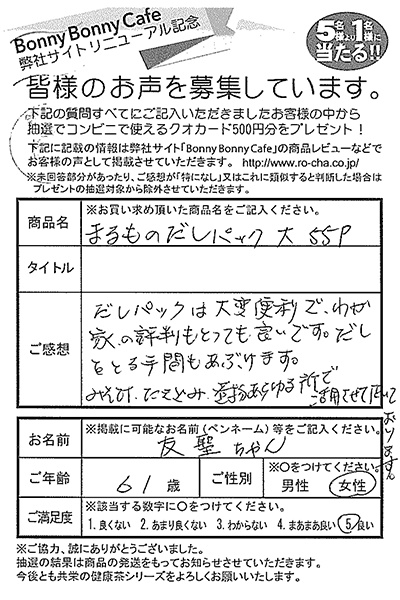 Bonny Bonny Cafe
弊社サイトリニューアル記念
5名様より1名様に
当たる!!
皆様のお声を募集しています。
下記の質問すべてにご記入いただきましたお客様の中から
抽選でコンビニで使えるクオカード500円分をプレゼント！
下記に記載の情報は弊社サイト「Bonny Bonny Cafe」の商品レビューなどで
お客様の声として掲載させていただきます。 http://www.ro-cha.co.jp/
※未回答部分があったり、ご感想が「特になし」又はこれに類似すると判断した場合は
プレゼントの抽選対象から除外させていただきます。
商品名
※お買い求め頂いた商品名をご記入ください。
まるものだしパック 大 55P
タイトル
ご感想
だしパックは大変便利で、わが
家の評判もとっても良いです。だし
をとる手間もあぶけます。
みそ汁、たえとみ、あらゆる所で
活用させて頂いて
おります
お名前
※掲載に可能なお名前（ペンネーム）等をご記入ください。
友聖ちゃん
ご年齢
61歳
ご性別
※〇をつけてください。
男性 女性
ご満足度
※該当する数字に〇をつけてください。
1. 良くない 2. あまり良くない 3. わからない 4. まあまあ良い 5. 良い
※ご協力、誠にありがとうございました。
抽選の結果は商品の発送をもってお知らせさせていただきます。
今後とも共栄の健康茶シリーズをよろしくお願いいたします。